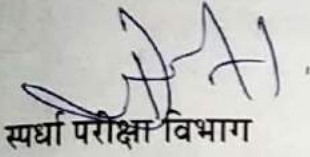 स्पर्धा परीक्षा विभाग